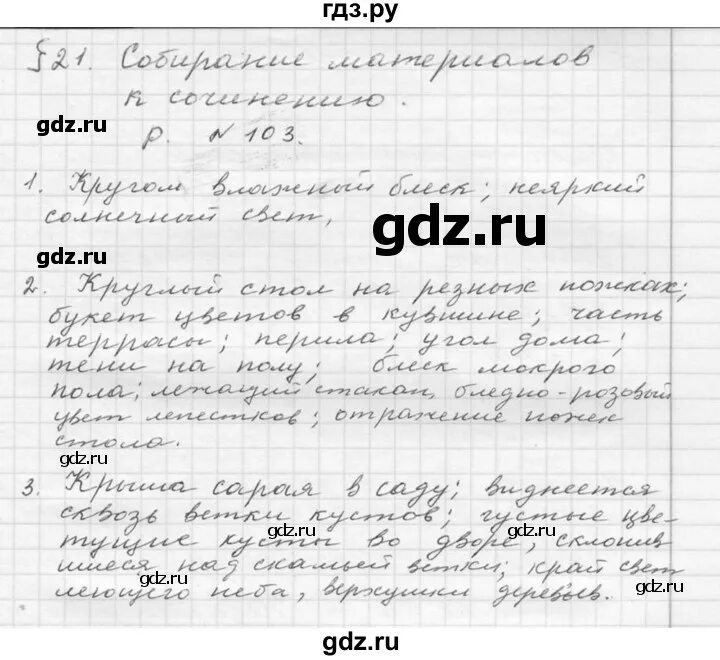 гдз.ру
§21. Собирание материалов
к сочинению.
gdz.ru
р. №103.
1. Кругом влажный блеск; неяркий
солнечный свет,
gdz.ru
gdz.ru
2. Круглый стол на резных ножках;
букет цветов в кувшине; часть
террасы; перила; угол дома;
тени на полу; блеск мокрого
пола; лежащий стакан, бледно-розовый
цвет лепестков; отражение ножек
стола.
gdz.ru
gdz.ru
3. Крыша сарая в саду; виднеется
сквозь ветки кустов; густые цве-
тущие кусты во дворе, склонив
шиеся над скамьей ветки; край свет
леющего неба, верхушки деревьев.
gdz.ru
gdz.ru
gdz.ru